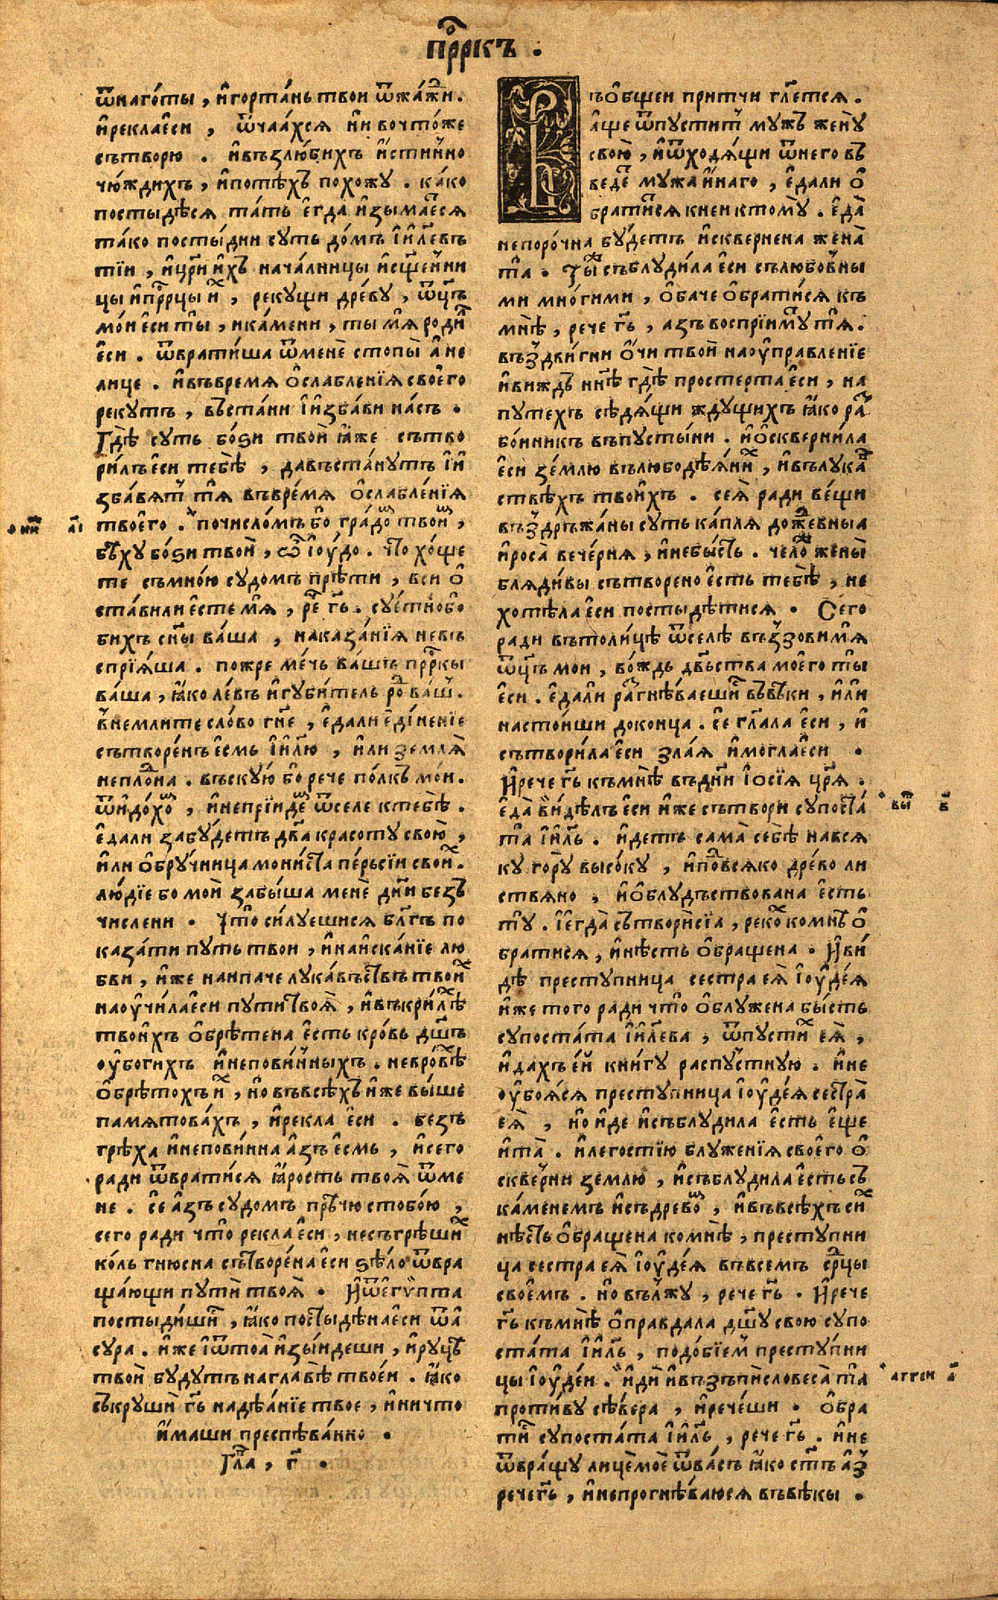 прⷪ҇ркъ .
ѿнаго́ты , и҆горта́нь твои ѿжа́жⷣи .
и҆рекла҆е҆си , ѿчаа́хсѧ и҆ни вочто́же
сътворю . и҆възлю́бихъ и҆сти́нно
чю́ждихъ , и҆потѣ́хъ похожу . ка́ко
постыдѣ́сѧ та́ть е҆гда и҆зыма́еⷮсѧ
та́ко посты́дни суть до́мъ і҆и҃левъ
тїи , и҆цр҃и и҆хъ нача́лницы и҆сщ҃е́нни
цы и҆прⷪ҇рцы иⷯ , рекущи дре́ву , ѿц҃ъ
мо́и е҆си ты̀ , и҆ка́мени , ты мѧ̀ родиⷧ҇
е҆си . ѿврати́ша ѿменѐ стопы̀ а҆ не
лице . и҆въвремѧ ѡ҆слабле́нїѧ своего
рекутъ , въста́ни і҆и҆зба́ви на́съ .
Гдѣ̀ суть бо́ѕи твои̑ ꙗ҆́же сътво
ри́лъ е҆си тебѣ̀ , давъста́нутъ і҆и
зба́вѧтъ тѧ̀ въвре́мѧ ѡ҆слабле́нїѧ
твоего . почисло́мъ бо̀ градоⷡ҇ твоиⷯ ,
бѣ́ху бо́ѕи твои̑ , ѽ і҆ю́до . что̀ хо́ще
те съмно́ю судомъ прѣ́ти , вси ѡ҆
ста́вили е҆сте мѧ̀ , рече гⷭ҇ь . суе́тно бо
бихъ сн҃ы ва́ша , наказа́нїѧ невъ
спрїѧ́ша . пожре ме́чь ва́шъ прⷪ҇ркы
ва́ша , ꙗ҆ко ле́въ и҆губи́тель роⷣ ва́шъ .
внемлите сло́во гн҃е , е҆дали е҆ди́ненїе
сътворе́нъ е҆смь і҆и҃лю , и҆ли землѧ̀
непло́дна . въскую̀ бо рече по́лкъ мо́и .
ѿидо́хоⷨ , и҆неприи́деⷨ ѿселе ктебѣ̀ .
е҆дали забу́детъ дв҃а красоту свою̀ ,
и҆ли ѡ҆бру́чница мони́ста пе́рьсїи своиⷯ .
лю́дїе бо мои̑ забы́ша мене дн҃и безъ
числени . Что̀ силуешисѧ бл҃гъ по
каза́ти путь твои , и҆наиска́нїе лю
бви , и҆же наипаче лука́въствъ твоиⷯ
наоу҆чи́лае҆си пути твоѧ̀ , и҆въкри́лѣⷯ
твои́хъ ѡ҆брѣ́тена е҆сть кро́вь дш҃ъ
оу҆бо́гихъ и҆непови́нныхъ . невро́вѣⷯ
ѡ҆брѣтохъ иⷯ , но въвсѣ́хъ и҆же вы́ше
памѧтова́хъ , и҆рекла е҆си . безъ
грѣ́ха и҆непови́нна а҆́зъ е҆смь , и҆сего
ради ѿврати́сѧ ꙗ҆́рость твоѧ̀ ѿме
не . се а҆зъ судомъ прѣ́чю стобо́ю ,
сего ради что̀ рекла е҆си , несъгрѣши́хъ
ко́ль гнюсна сътворе́на е҆си ѕѣ́ло ѿвра
ща́ющи пути̑ твоѧ̀ . И҆ѿе҆гѵ́пта
постыди́шисѧ , ꙗ҆ко постыдѣ́на е҆си ѿа
сура . и҆же іѿтоа̀ и҆зы́идеши , и҆ру́цѣ
твои̑ бу́дутъ наглавѣ̀ твое́и . ꙗ҆́ко
съкрушѝ гⷭ҇ь надѣ́анїе твое , и҆ничто
и҆́маши преспѣва́нно .
Гла̀ , г҃ .
Въѡ҆́бщеи притчи гл҃етсѧ .
а҆́ще ѿпуститъ мужъ жену̀
свою̀ , и҆ѿходѧ́щи ѿнего въ
ведеⷮ мужа и҆́наго , е҆дали ѡ҆
братитсѧ кнеи ктому̀ . е҆да̀
непоро́чна бу́детъ и҆сквернена жена̀
та̀ . Ты́ съблудила е҆си сълюбо́вны
ми мно́гими , ѡ҆ба́че ѡ҆брати́сѧ къ
мнѣ̀ , рече гⷭ҇ь , а҆зъ воспрїиму̀ тѧ̀ .
въздви́гни ѡ҆́чи твои̑ наоу҆правле́нїе
и҆виждь нн҃ѣ гдѣ̀ просте́рта е҆си , на
путехъ сѣдѧ́щи ждущихъ ꙗ҆́ко раⷥ
бо́иникъ въпусты́ни . и҆ѡ҆скверни́ла
е҆си зе́млю вълюбодѣѧ́ниⷯ , и҆вълука
ствѣ́хъ твои́хъ . сеѧ̀ ради ве́щи
въздръжаны суть ка́плѧ дожде́вныа
и҆роса̀ вече́рнѧ , и҆небы́сть . чело̀ жены̀
блѧди́вы сътворено е҆сть тебѣ̀ , не
хотѣ́ла е҆си постыдѣ́тисѧ . Сего
ради вътоли́цѣ ѿселѣ̀ възовѝ мѧ
ѿц҃ъ мои , во́ждь дв҃ьства моего ты̀
е҆си . е҆дали разгнѣ́ваешисѧ въвѣ́ки , и҆ли
настои́ши доконца . се гл҃ала е҆си , и҆
сътвори́ла е҆си зла́ѧ и҆могла е҆си .
И҆рече гⷭ҇ь къмнѣ̀ въдн҃и і҆ѡсїѧ цр҃ѧ .
е҆да̀ ви́дѣлъ е҆си и҆же сътвори супоста́
та і҆и҃ль . и҆детъ сама̀ себѣ̀ навсѧ
ку гору̀ высо́ку , и҆поⷣвсѧко дре́во ли
ствѧно , и҆ѡ҆блудъствована е҆сть
ту̀ . і҆е҆гда сътвори́сїа , реко́хъ комнѣ̀ ѡ҆
братисѧ , и҆нѣсть ѡ҆бра́щена . И҆ви́
дѣ преступница сестра еѧ̀ і҆юде́ѧ
и҆же того ради что̀ ѡ҆блужена бы́сть
супоста́та і҆и҃лева , ѿпустиⷯ еѧ̀ ,
и҆дахъ е҆и̑ кни́гу распу́стную . и҆не
оу҆боѧсѧ преступница і҆юде́ѧ сестра̀
еѧ̀ , но и҆́де и҆съблудила е҆сть е҆ще
и҆та̀ . и҆легостїю блуже́нїѧ своего ѡ҆
скве́рни зе́млю , и҆съблудила е҆сть съ
ка́менемъ и҆съдревоⷨ , и҆въвсѣ́хъ сиⷯ
нѣсть ѡ҆бращена комнѣ̀ , преступни
ца сестра еѧ̀ і҆юде́ѧ въвсемъ срⷣцы
своемъ . но вължу , рече гⷭ҇ь . И҆рече
гⷭ҇ь къмнѣ̀ ѡ҆правдала дш҃у свою супо
ста́та і҆и҃ль , подо́бїемъ преступни
цы і҆юде́и . и҆ди и҆въпїѝ словеса̀ та̀
проти́ву сѣ́вера , и҆рече́ши . ѡ҆бра
ти́сѧ супоста́та і҆и҃ль , рече гⷭ҇ь . и҆не
ѿвращу лице моѐ ѿва́съ ꙗ҆ко ст҃ъ а҆зъ
рече гⷭ҇ь , и҆непрогнѣ́ваюсѧ въвѣ́кы .